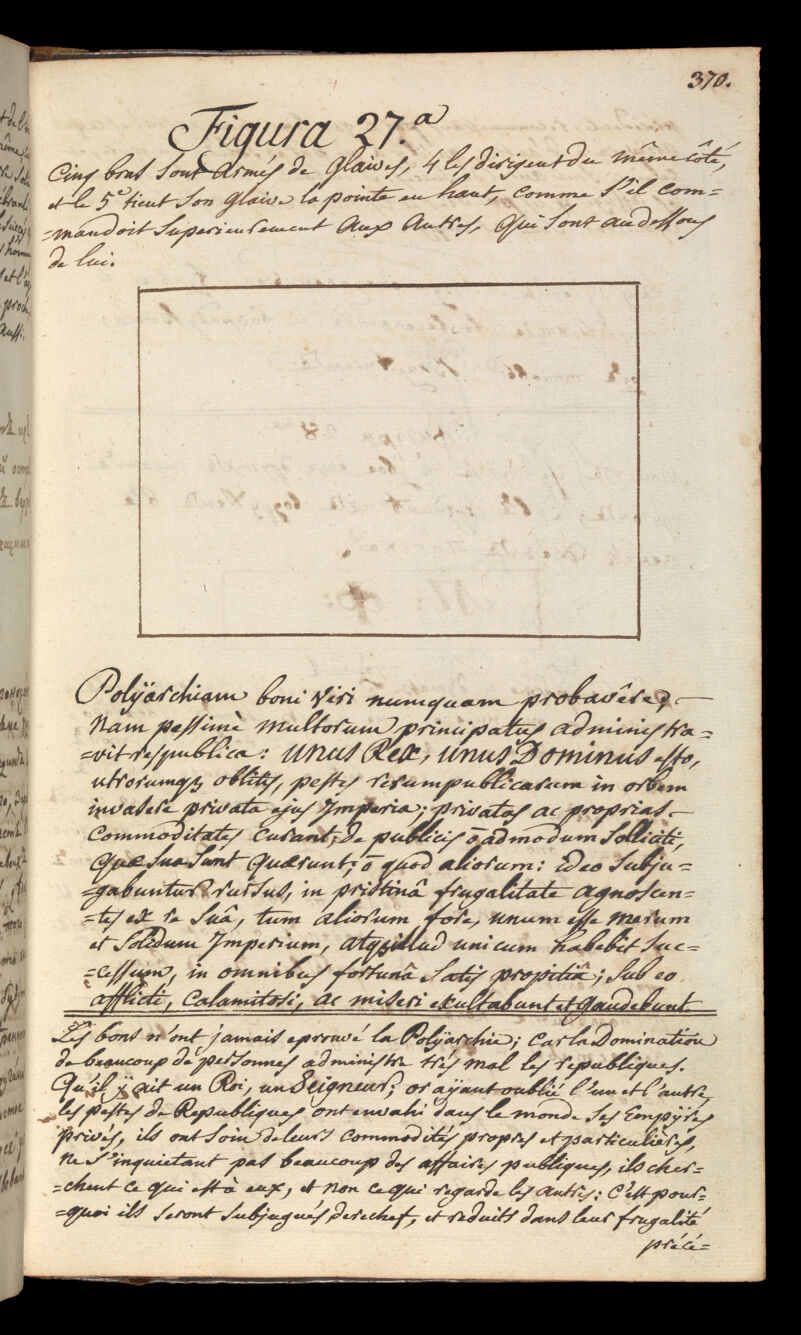 370.
Figura 27.a
Cinq bras sont armés de glaives, 4 les dirigent du même côté,
et le 5e tient son glaive la pointe en haut, comme s'il com=
=mandoit superieurement aux autres, qui sont au dessous
de lui.
Polÿarchiam boni viri numquam probavêre;
nam pessimè multorum principatus administra=
=vit respublica: unus Rex, unus Dominus esto,
utrorumqz oblitis, pestes rerumpublicarum in orbem
invasere privata ejus Imperia; privatas ac proprias
commoditates curant, de publicis ō admodum solliciti,
quæ sua sunt quærunt; ō quod aliorum: ideo subju=
=gabuntur rursus, in pristinâ frugalitate agnoscen=
=tes ex re suâ, tum aliorum fore, unum esse merum
et solidum Imperium, atqz illud unicum habebit suc=
=cessum, in omnibus fortunâ satis propitiâ; sub eo
afflicti, calamitosi, ac miseri exultabunt et gaudebunt
Les bons n'ont jamais eprouvé la Polÿarchie; car la Domination
de beaucoup de personnes administre très mal les republiques.
Qu'il ÿ ait un Roi, un Seigneur; or aÿant oublié l'un et l'autre,
les pestes de Republiques ont envahi dans le monde ses Empÿres
privés, ils ont soin de leurs commodités propres et particulières,
ne s'inquietant pas beaucoup des affaires publiques, ils cher=
=chent ce qui est à eux, et non ce qui regarde les autres: c'est pour=
=quoi ils seront subjugués derechef, et reduits dans leur frugalité
précé=